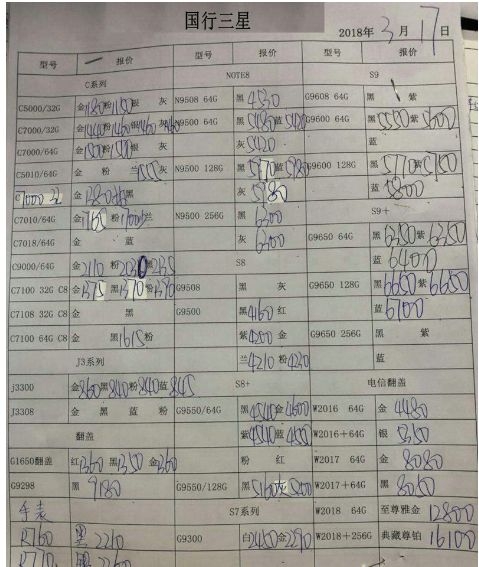 国行三星
2018年3月17日
型号 报价 型号 报价 型号 报价
C系列 NOTE8 S9
C5000/32G 金1180粉1150银 灰 N9508 64G 黑4530 G9608 64G 黑 紫
C7000/32G 金1440粉1460银1460灰 N9500 64G 黑5480蓝5420 G9600 64G 黑5550紫5600
C7000/64G 金1500粉银 灰 灰5420 蓝
C5010/64G 金 粉 兰 灰 N9500 128G 黑5770蓝5780 G9600 128G 黑5710紫5750
C7000 32 金1380粉黑 灰5780 蓝5800
C7010/64G 金1765粉1700兰 N9500 256G 黑6300 S9+
C7018/64G 金 蓝 灰6300 G9650 64G 黑6350紫6350
C9000/64G 金2110粉2030黑2135 S8 蓝6400
C7100 32G C8 金1375黑1370粉1390 G9508 黑 灰 G9650 128G 黑6650紫6650
C7108 32G C8 金 黑 G9500 黑4160红 蓝6700
C7100 64G C8 黑1615粉 紫4200金 G9650 256G 黑 紫
J3系列 兰4210粉4220 蓝
j3300 金860黑840粉840蓝845 S8+ 电信翻盖
J3308 金 黑 蓝 粉 G9550/64G 黑4540金4600 W2016 64G 金4480
翻盖 紫4540蓝4550 W2016+64G 银5350
G1650翻盖 红1360黑1350金1360 粉 红 W2017 64G 金8080
G9298 黑9180 G9550/128G 黑5160灰5200 W2017+64G 黑8050
手表 S7系列 W2018 64G 至尊雅金12800
R760 黑2210 G9300 白2450金2290 W2018+256G 典藏尊铂16100
R770 黑2260